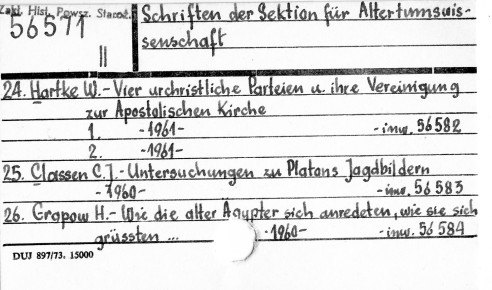 Zakł. Hist. Powsz. Staroż.
56571
II
Schriften der Sektion für Altertumswis-
senschaft
24. Hartke W.- Vier urchristliche Parteien u. ihre Vereinigung
zur Apostolischen Kirche
1. -1961- -inw. 56582
2. -1961-
25. Classen C.J.- Untersuchungen zu Platons Jagdbildern
-1960- -inw. 56583
26. Grapow H.- Wie die alter Ägypter sich anredeten, wie sie sich
grüssten ... -1960- -inw. 56584
DUJ 897/73. 15000